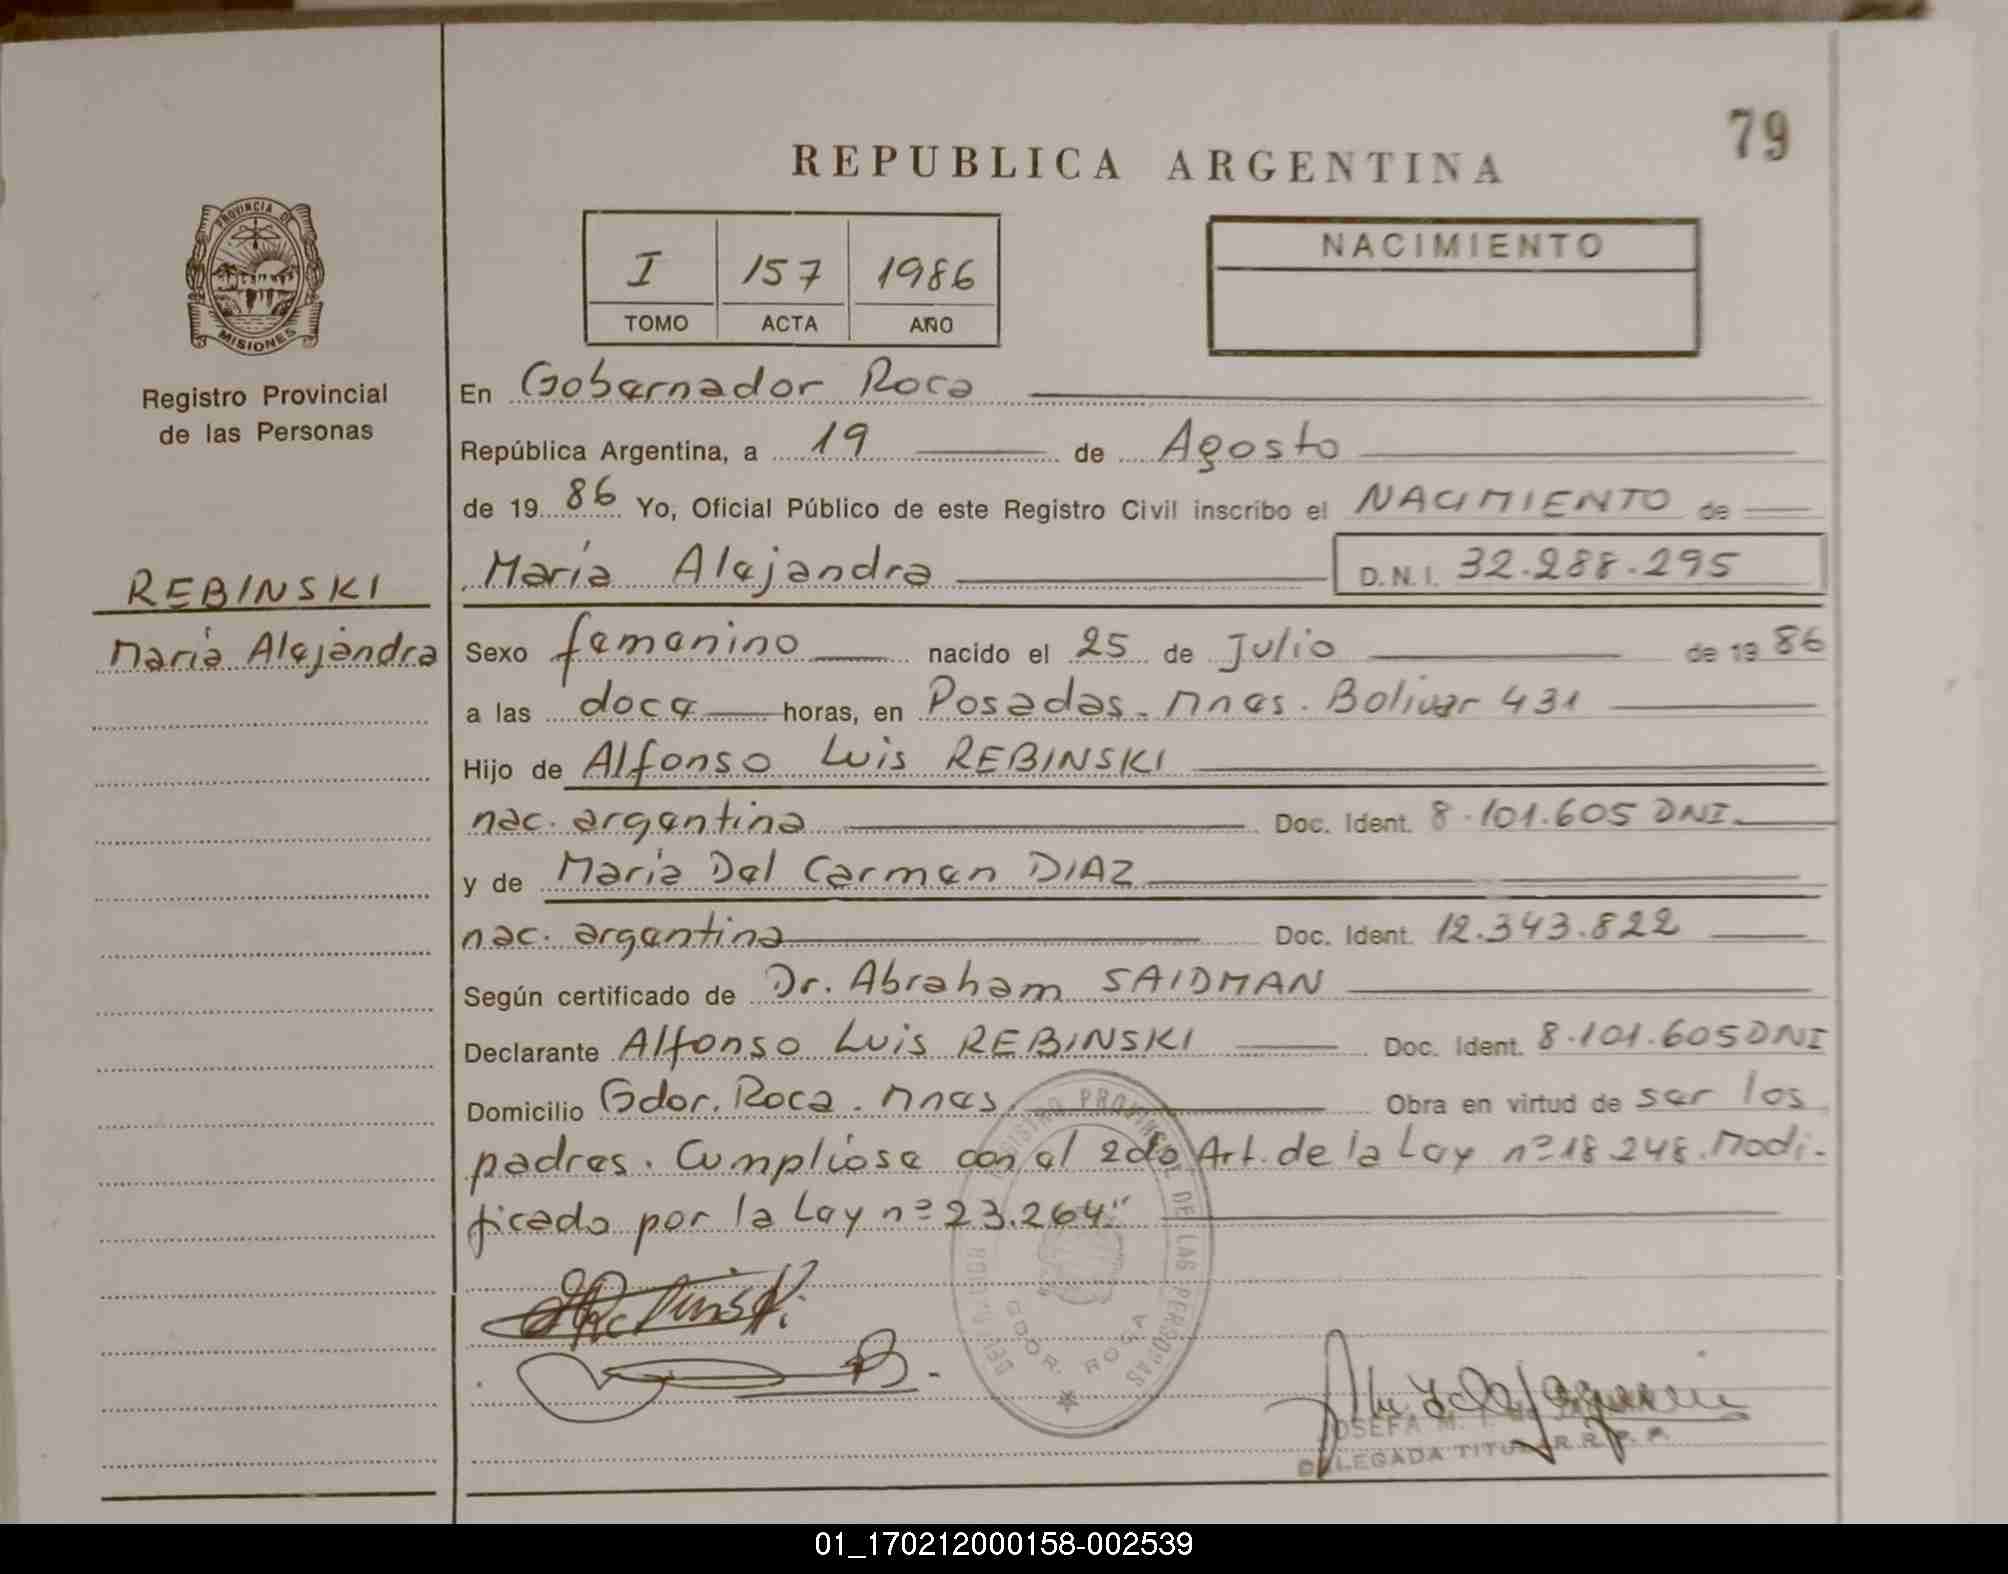 79
REPUBLICA ARGENTINA
PROVINCIA DE
MISIONES
Registro Provincial
de las Personas
I 157 1986
TOMO ACTA AÑO
NACIMIENTO
En Gobernador Roca
República Argentina, a 19 de Agosto
de 19 86 Yo, Oficial Público de este Registro Civil inscribo el NACIMIENTO de
María Alejandra D.N.I. 32.288.295
REBINSKI
María Alejandra
Sexo femenino nacido el 25 de Julio de 19 86
a las doce horas, en Posadas. Mnes. Bolivar 431
Hijo de Alfonso Luis REBINSKI
nac. argentina Doc. Ident. 8.101.605 DNI.
y de María Del Carmen DIAZ
nac. argentina Doc. Ident. 12.343.822
Según certificado de Dr. Abraham SAIDMAN
Declarante Alfonso Luis REBINSKI Doc. Ident. 8.101.605 DNI
Domicilio Gdor. Roca. Mnes. Obra en virtud de ser los
padres. Cumpliose con el 2do Art. de la Ley nº 18.248. Modi-
ficado por la Ley nº 23.264"
REGISTRO PROVINCIAL DE LAS PERSONAS
GDOR. ROCA
JOSEFA M.
DELEGADA TITULAR R. P. P.
01_170212000158-002539